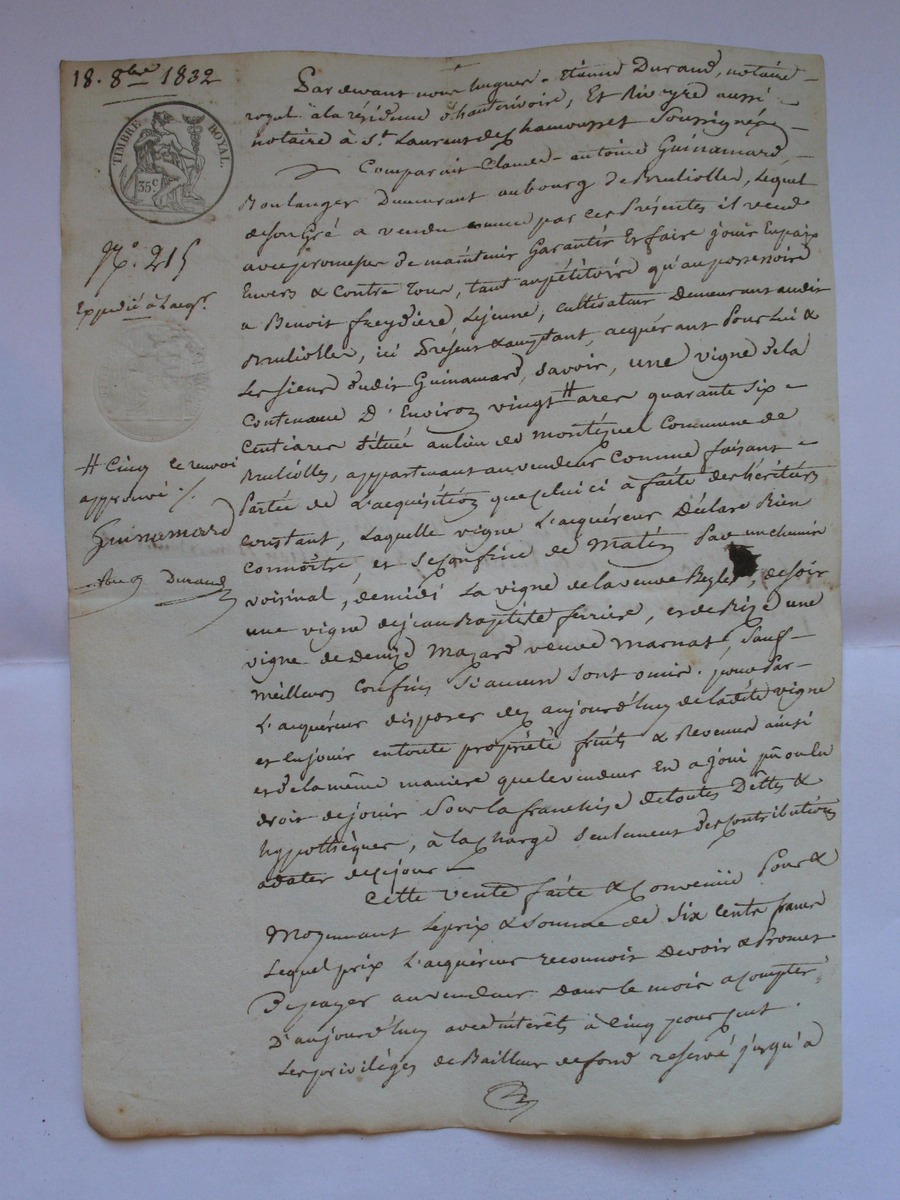 18. 8bre 1832
TIMBRE ROYAL.
35c
No. 215
Expédié à l'acqr.
# Cinq le renvoi
approuvé ./.
Guinamard
Durand
Pardevant nous hugues-Etienne Durand, notaire
royal à la résidence d'hauterivoire, Et Rivoyre aussi
notaire à St. Laurent de Chamousset Soussignés
Comparait Claude-antoine Guinamard,
Boulanger Demeurant au bourg de Brulioller, Lequel
de son Gré a vendu comme par ces Présentes il vend
avec promesse de maintenir Garantir Et faire jouir En paix
Envers & Contre Tous, tant au pétitoire qu'au possessoire
a Benoit freydiere, Lejeune, Cultivateur Demeurant audit
Brulioller, ici Présent & acceptant, acquérant Pour Lui &
Les Siens dudit Guinamard, Savoir, une vigne de la
Contenance D'Environ vingt # ares quarante Six
Centiares Située au lieu de montéguel Commune de
Brulioller, appartenant au vendeur Comme faisant
Partie de L'acquisition que celui ci a faite des héritiers
Constant, Laquelle vigne L'acquéreur Déclare Bien
Connoitre, et Se Confine de Matin Par un chemin
voisinal, de midi La vigne de la veuve, de Soir
une vigne de jean Baptiste ferriere, et de Bize une
vigne de denise Mazard veuve Marnat, Sauf
meilleurs Confins Si aucun Sont omis. pour Par
L'acquéreur disposer dès aujourd'huy de ladite vigne
et En jouir en toute propriété fruits & Revenus ainsi
et de la même maniere que le vendeur En a joui pû ou du
droit de jouir Sous la franchise de toutes Dêttes &
hypothèques, à la charge Seulement des contributions
adater de ce jour
Cette vente faite & Convenue Pour &
Moyennant Le prix & Somme de Six cents francs
Lequel prix L'acquéreur reconnoit Devoir & Promet
De payer au vendeur Dans le mois a compter
D'aujourd'huy avec intérêts à Cinq pour cent.
Les privilèges de Bailleur de fond reservé jusqu'à